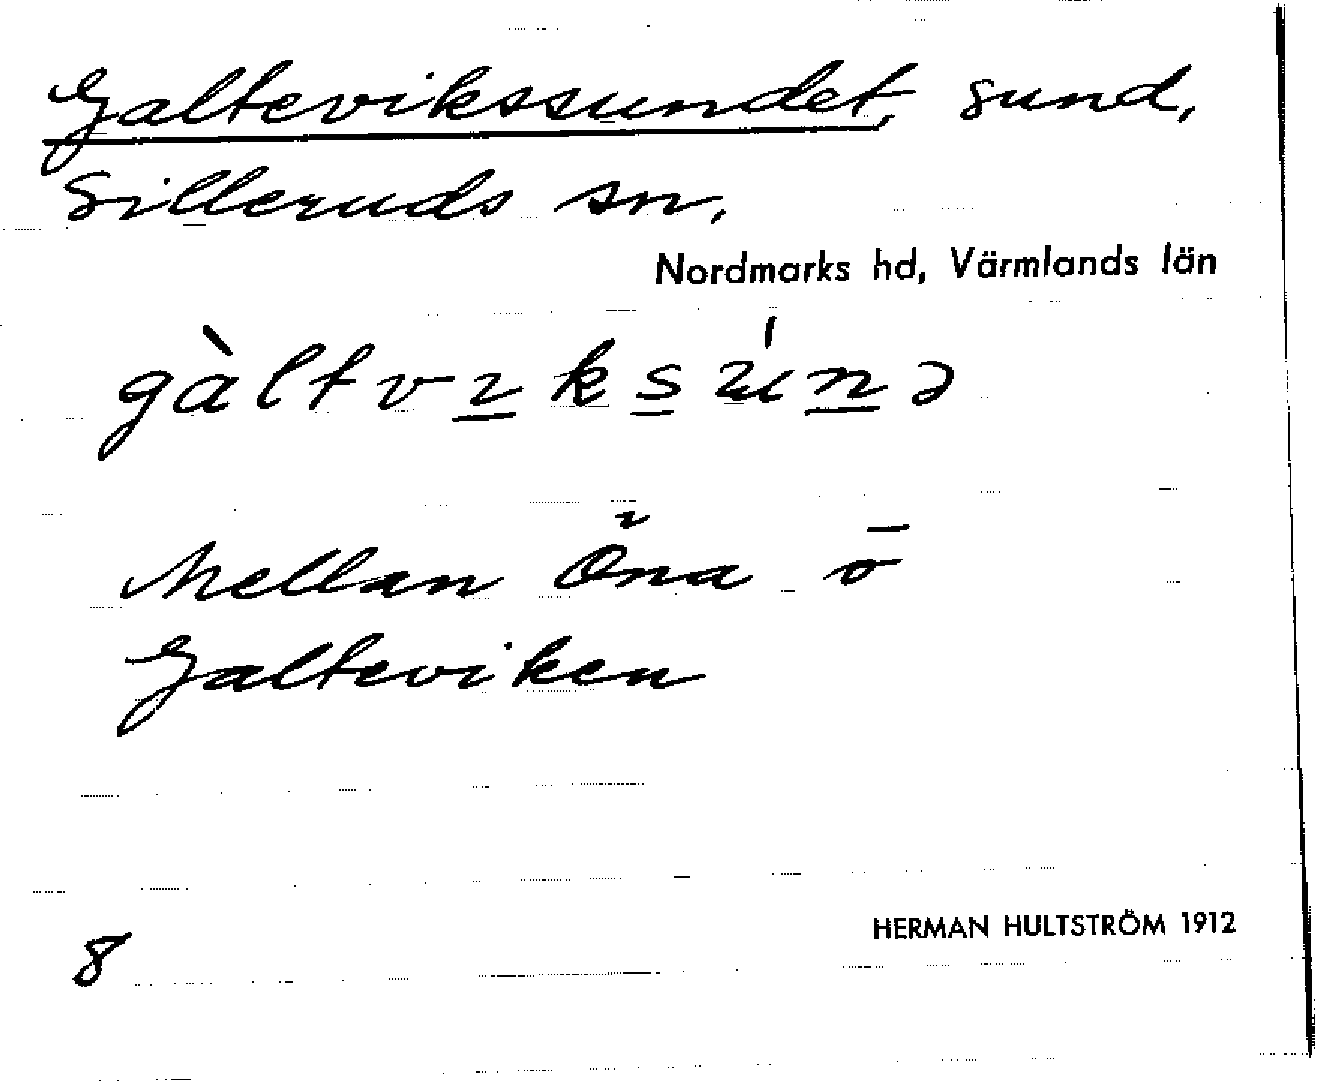 Galtevikssundet, sund,
Silleruds sn,
Nordmarks hd, Värmlands län
gàltvıksúnə
Mellan Öna o
Galteviken
HERMAN HULTSTRÖM 1912
8